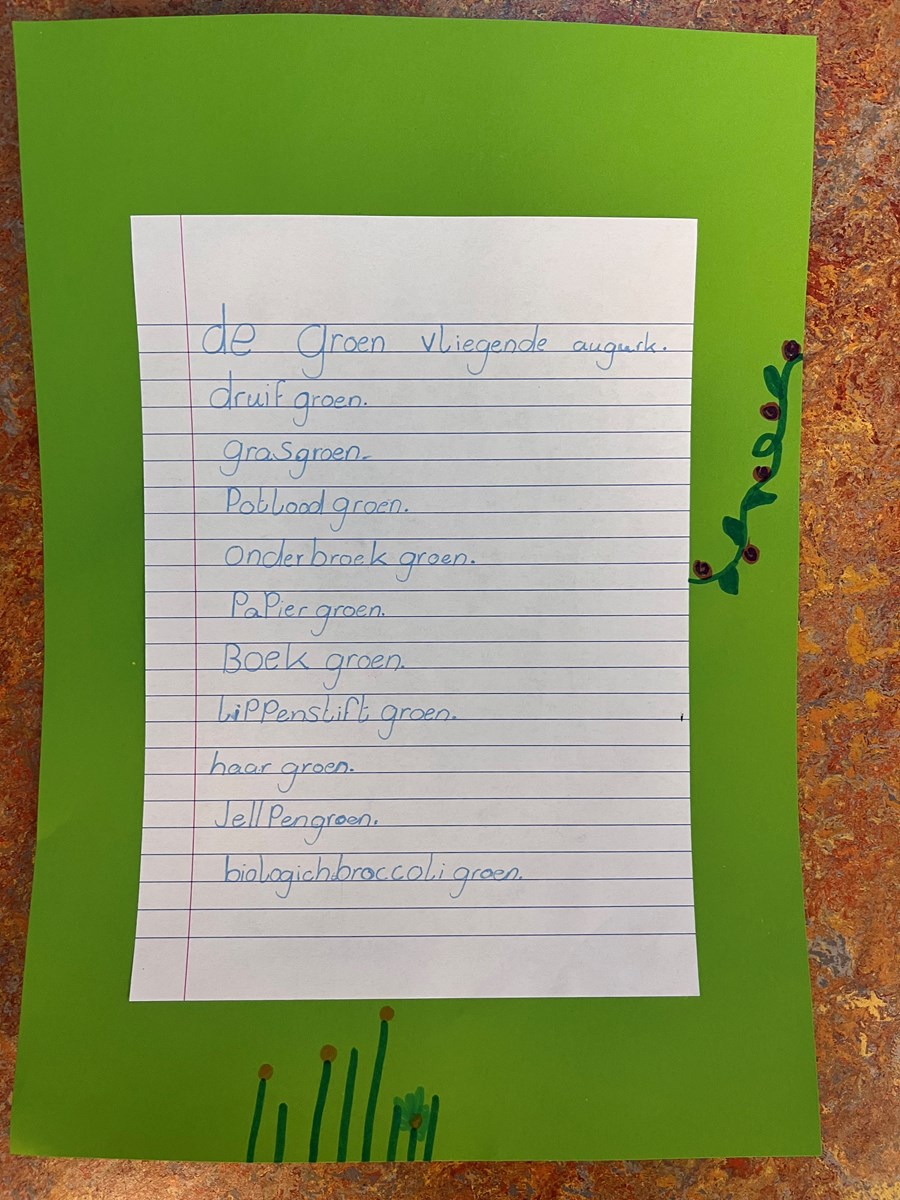 de groen vliegende augurk.
druif groen.
grasgroen.
Potlood groen.
Onderbroek groen.
PaPier groen.
Boek groen.
LiPPenstift groen.
haar groen.
Jell Pengroen.
biologich broccoli groen.